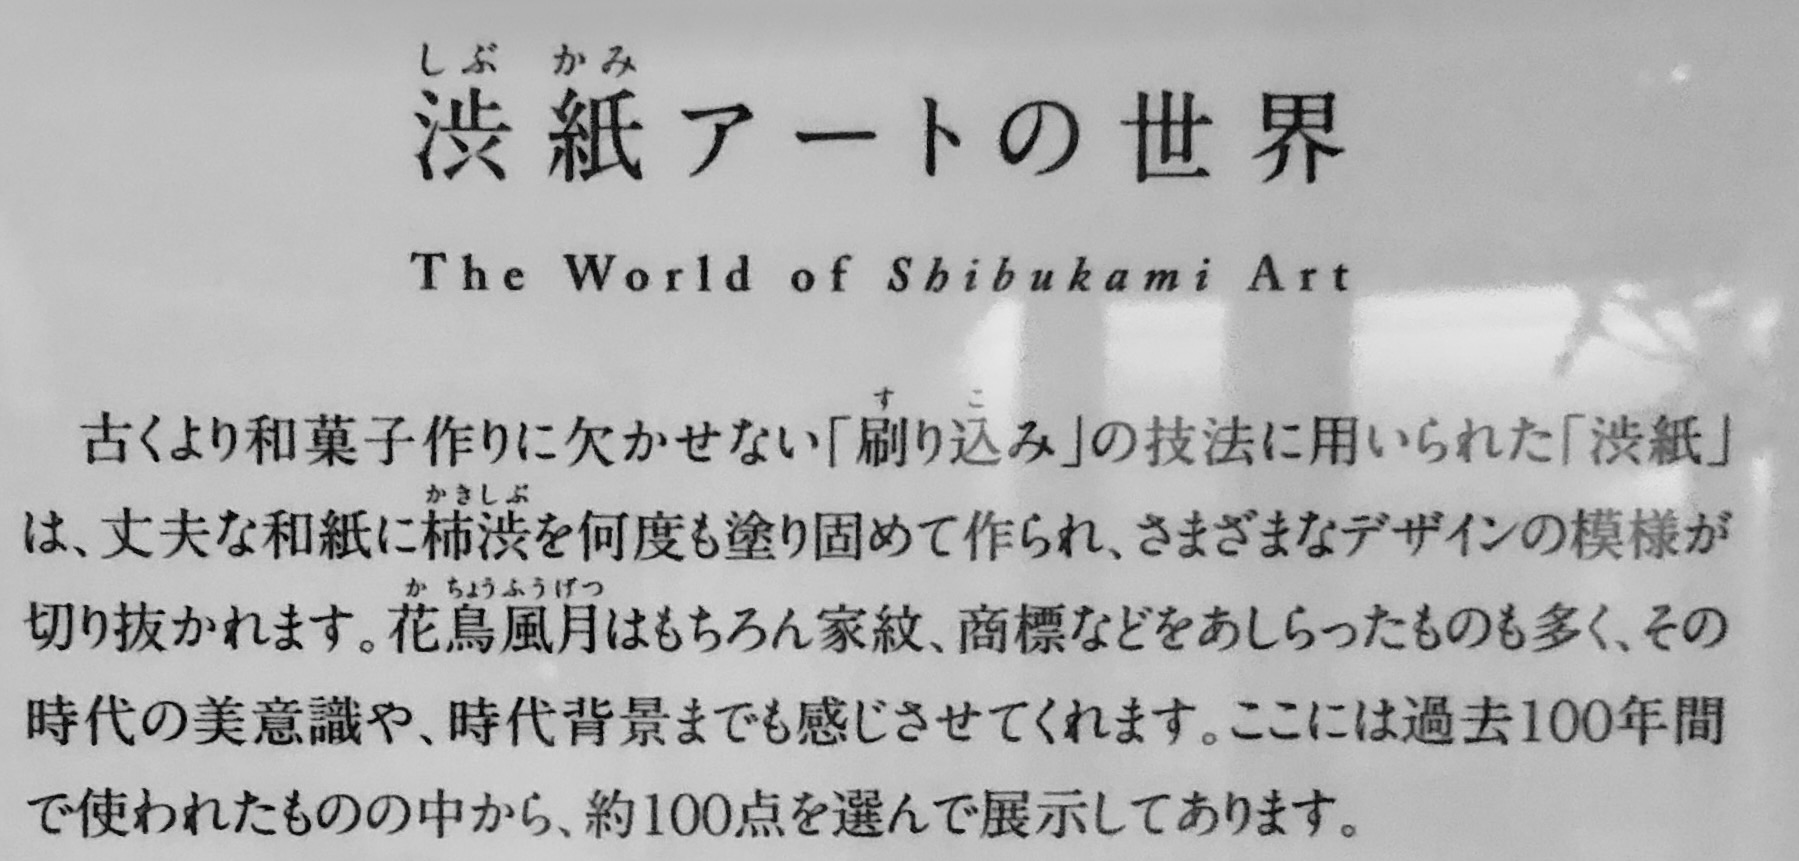 しぶ かみ
渋紙アートの世界
The World of Shibukami Art
す こ
古くより和菓子作りに欠かせない「刷り込み」の技法に用いられた「渋紙」
かきしぶ
は、丈夫な和紙に柿渋を何度も塗り固めて作られ、さまざまなデザインの模様が
か ちょうふうげつ
切り抜かれます。花鳥風月はもちろん家紋、商標などをあしらったものも多く、その
時代の美意識や、時代背景までも感じさせてくれます。ここには過去100年間
で使われたものの中から、約100点を選んで展示してあります。